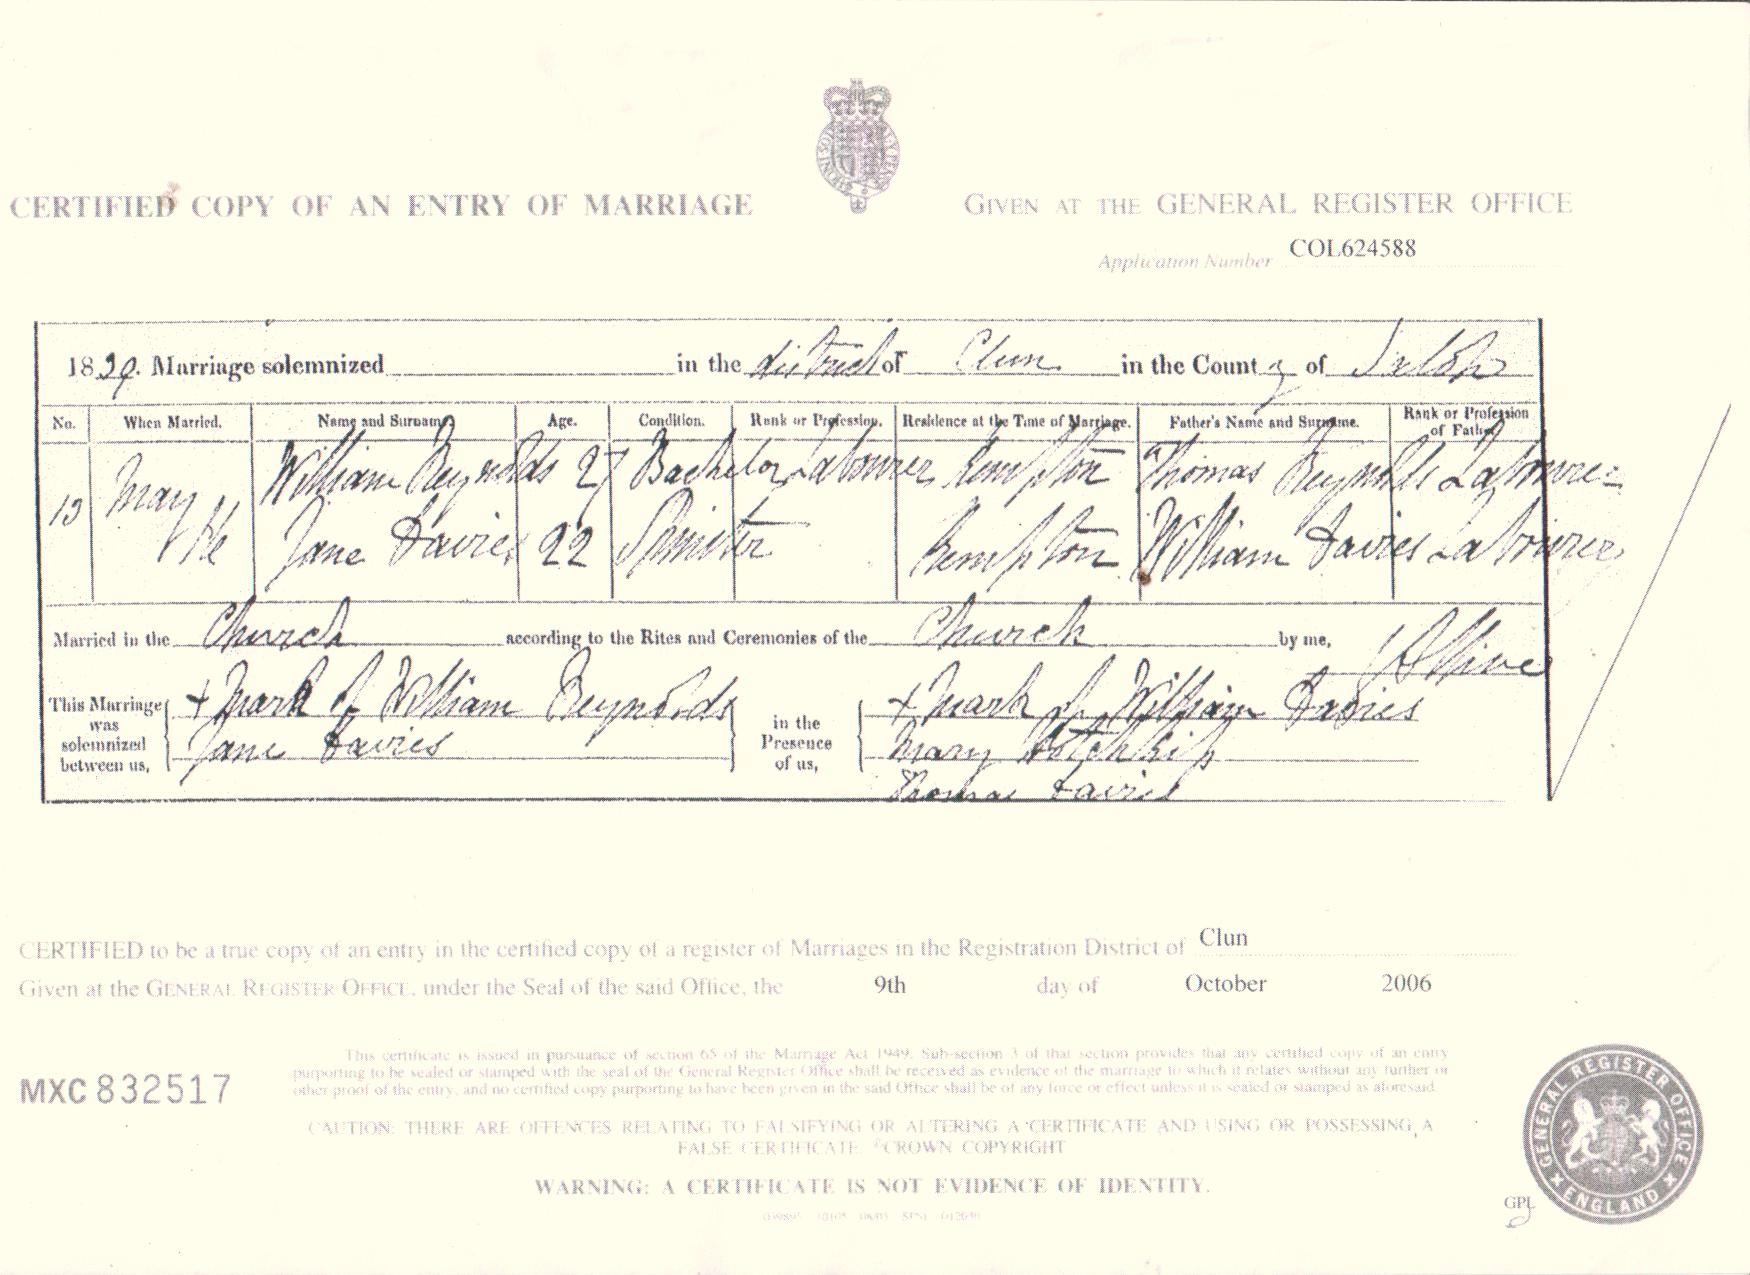 CERTIFIED COPY OF AN ENTRY OF MARRIAGE
GIVEN AT THE GENERAL REGISTER OFFICE
Application Number COL624588
1839. Marriage solemnized in the district of Clun in the County of Salop
No. When Married. Name and Surname. Age. Condition. Rank or Profession. Residence at the Time of Marriage. Father's Name and Surname. Rank or Profession of Father.
13 May William Reynolds 27 Bachelor Labourer Kempton Thomas Reynolds Labourer
Jane Davies 22 Spinster Kempton William Davies Labourer
Married in the Church according to the Rites and Ceremonies of the Church by me,
This Marriage was solemnized between us,
+ mark of William Reynolds
Jane Davies
in the Presence of us,
+ mark of William Davies
Mary
Thomas Davies
CERTIFIED to be a true copy of an entry in the certified copy of a register of Marriages in the Registration District of Clun
Given at the GENERAL REGISTER OFFICE, under the Seal of the said Office, the 9th day of October 2006
This certificate is issued in pursuance of section 65 of the Marriage Act 1949. Sub-section 3 of that section provides that any certified copy of an entry
purporting to be sealed or stamped with the seal of the General Register Office shall be received as evidence of the marriage to which it relates without any further or
other proof of the entry, and no certified copy purporting to have been given in the said Office shall be of any force or effect unless it is sealed or stamped as aforesaid.
MXC 832517
CAUTION: THERE ARE OFFENCES RELATING TO FALSIFYING OR ALTERING A CERTIFICATE AND USING OR POSSESSING A
FALSE CERTIFICATE. ©CROWN COPYRIGHT
WARNING: A CERTIFICATE IS NOT EVIDENCE OF IDENTITY.
GENERAL REGISTER OFFICE
ENGLAND
GPL